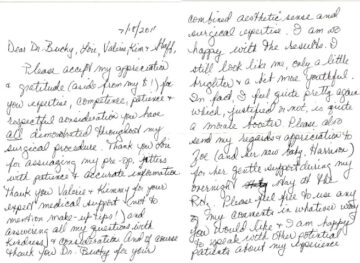 7/18/2011
Dear Dr. Bucky, Lori, Valerie, Kim & Staff,
Please accept my appreciation
& gratitude (aside from my t!) for
your expertise, competence, patience &
respectful consideration you have
all demonstrated throughout my
surgical procedure. Thank you Lori
for assuaging my pre-op jitters
with patience & accurate information
Thank you Valerie & Kimmy for your
expert medical support (not to
mention make-up tips!) and
answering all my questions with
kindness & consideration. And of course
thank you Dr. Bucky for your
combined aesthetic sense and
surgical expertise. I am so
happy with the results. I
still look like me, only a little
brighter & a bit more youthful.
In fact, I feel quite pretty again
which, justified or not, is quite
a morale booster. Please also
send my regards & appreciation to
Zoe (and her new baby, Harrison)
for her gentle support during my
overnight stay at the
Ritz. Please feel free to use any
of my comments in whatever way
you would like & I am happy
to speak with other potential
patients about my experience